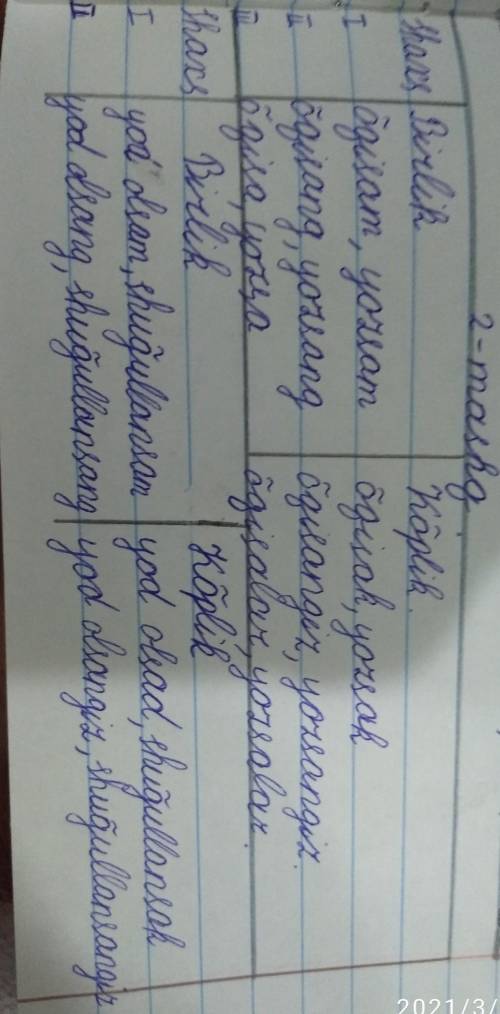 2-mashq
Shaxs Birlik Kõplik.
I õqisam, yozsam õqisak, yozsak
II õqisang, yozsang õqisangiz, yozsangiz.
III õqisa, yozsa õqisalar, yozsalar.
Shaxs Birlik Kõplik
I yod olsam, shuğullansam yod olsad, shuğullansak
II yod olsang, shuğullansang yod olsangiz, shuğullansangiz
2021/3/